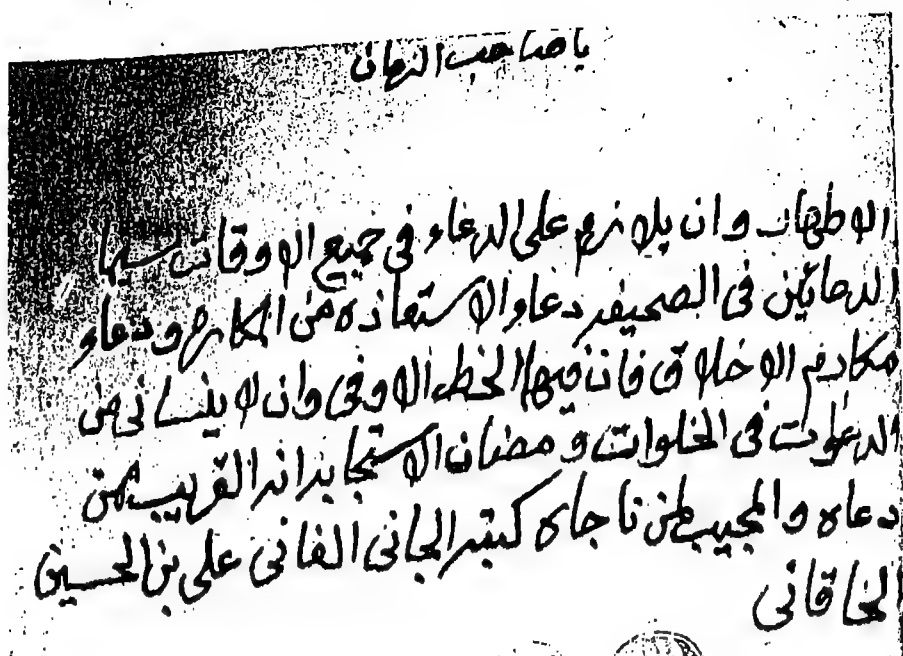 يا صاحب الزمان
الاطهار وان يلازم على الدعاء في جميع الاوقات سيما
الدعائين في الصحيفه دعاء الاستعاذه من المكاره ودعاء
مكارم الاخلاق فان فيها الحظ الاوفى وان لا ينساني من
الدعوات في الخلوات ومضان الاستجابه انه القريب ممن
دعاه والمجيب لمن ناجاه كتبه الجاني الفاني علي بن الحسين
الخاقاني